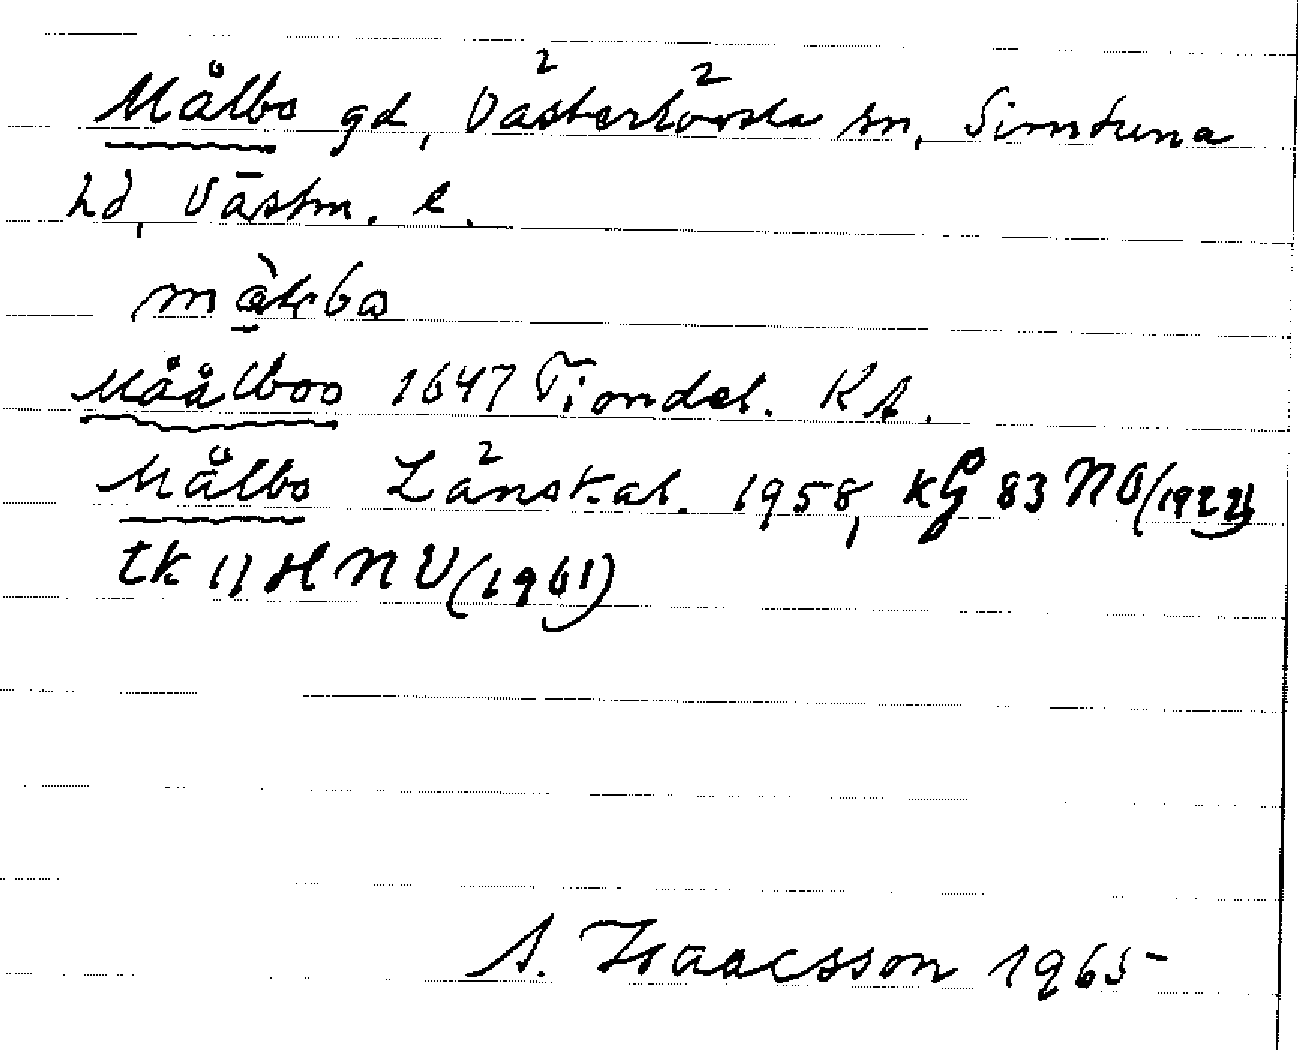 Målbo gd, Västerlövsta sn, Simtuna
hd, Västm. l.
Måålboo 1647 Tiondel. KA.
Målbo Länskat. 1958, kG 83 NO (1922)
tk 11 H NV (1961)
A. Isaacsson 1965